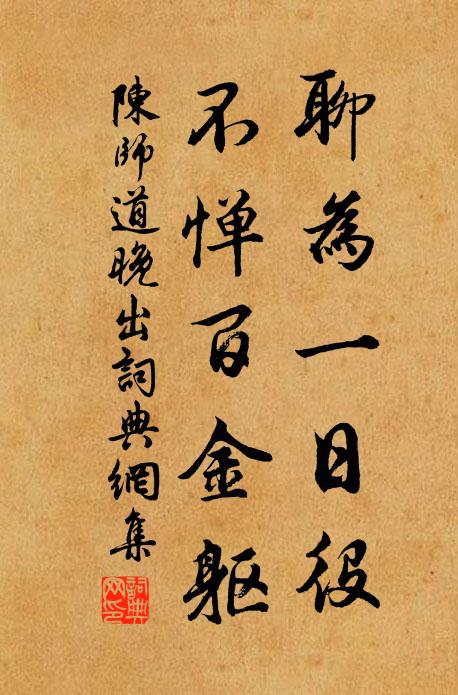 聊為一日役
不憚百金軀
陳師道晚出詞典網集
詞典网印